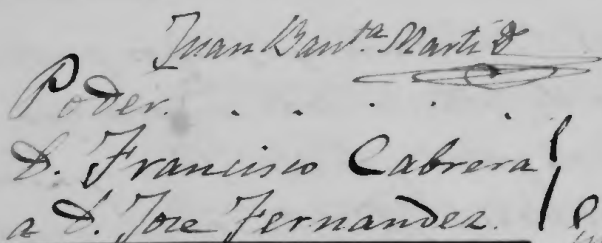 Juan Bauta Marti
Poder. . . . . .
D. Francisco Cabrera
a D. Jose Fernandez.